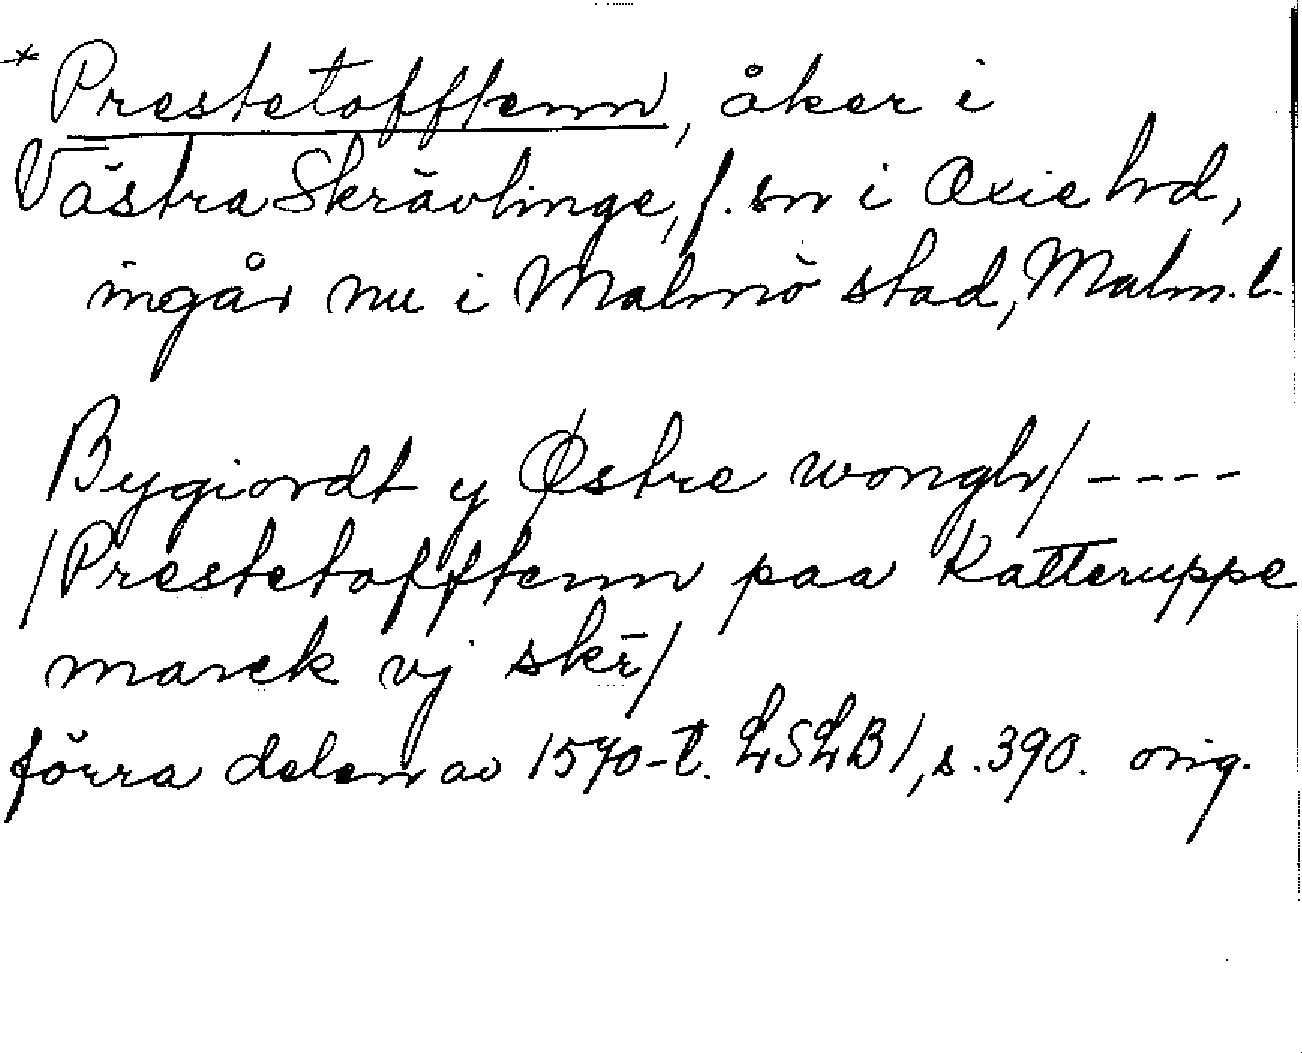 * Prestetofftenn, åker i
Västra Skrävlinge, f. sn i Oxie hd,
ingår nu i Malmö stad, Malm. l.
Bygiordt y Østre wongh/ ----
/Prestetofftenn paa Katteruppe
marck vj skr̄/
förra delen av 1570-t. LSLB 1, s. 390. orig.